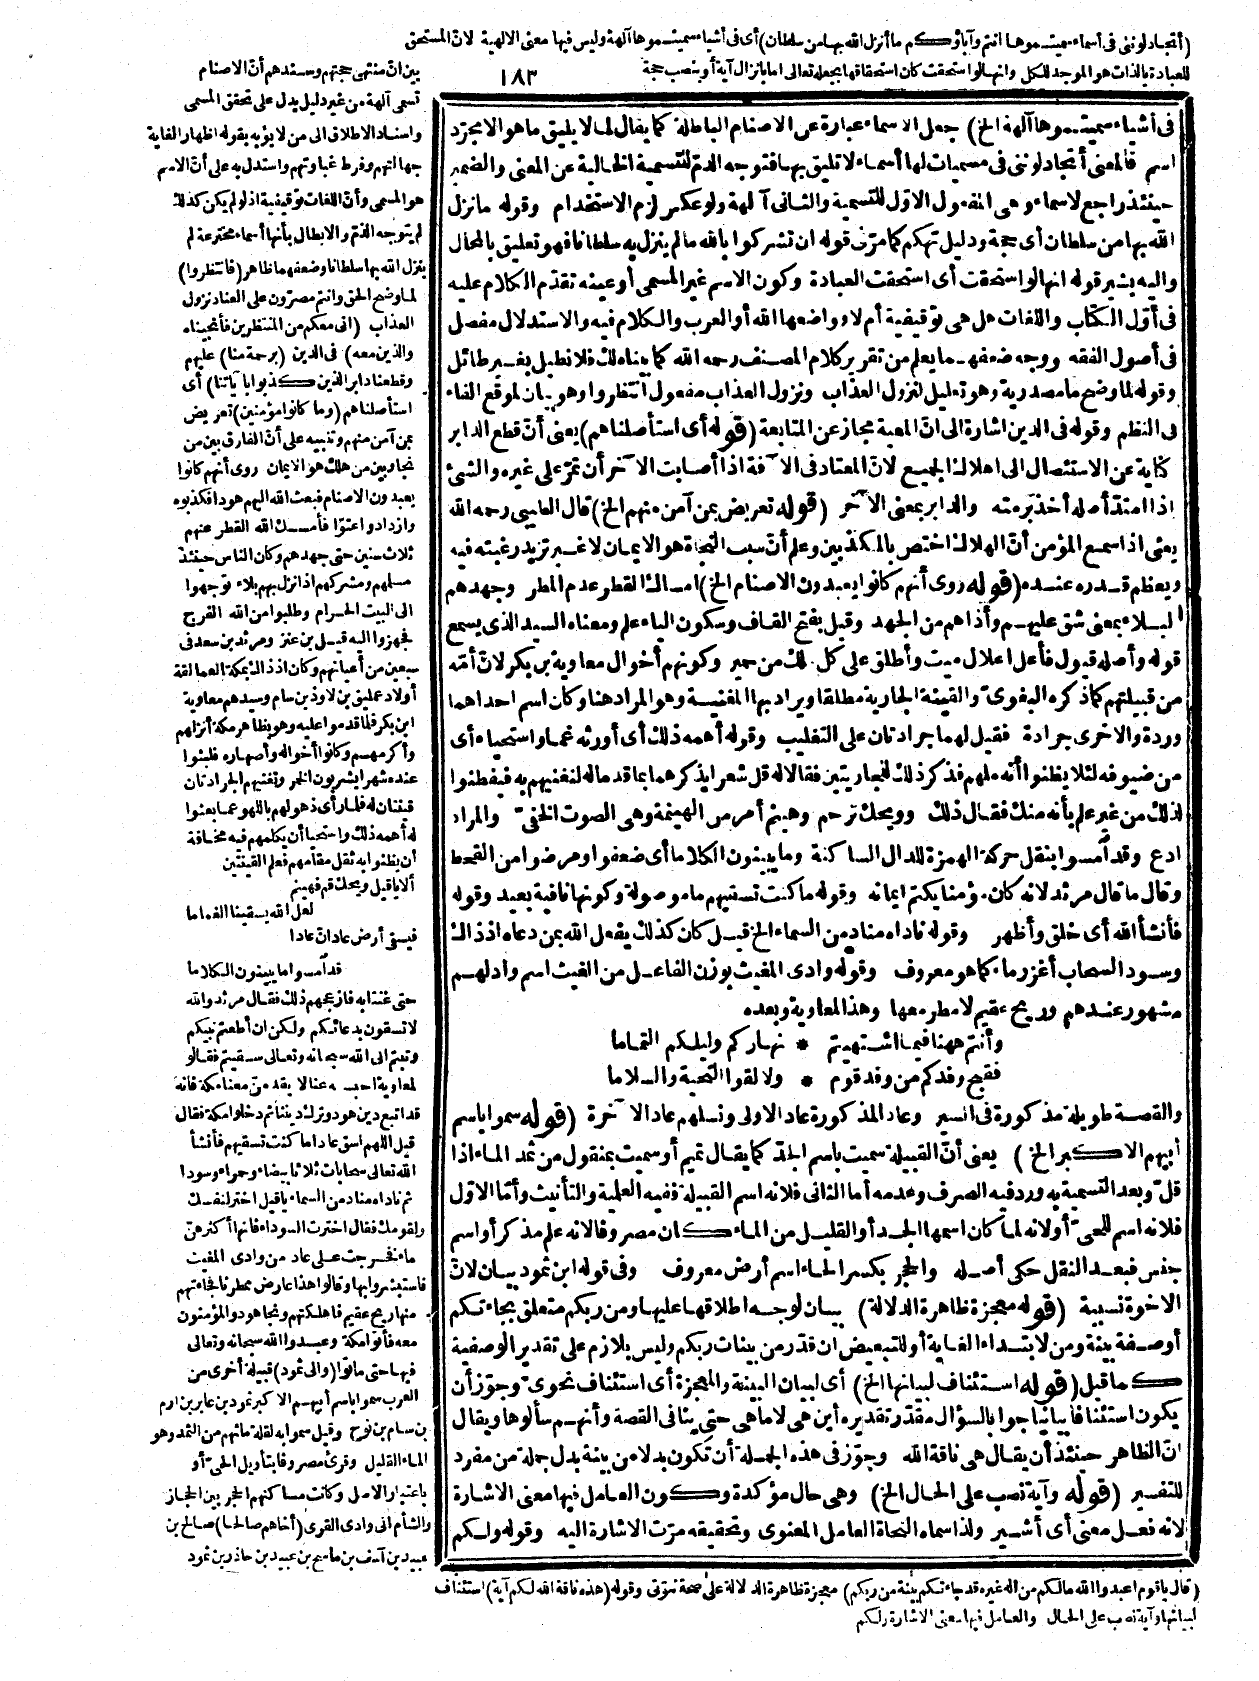 (أتجادلوننى فى أسماء سميتموها أنتم وآباؤكم ما أنزل الله بها من سلطان) أى فى أشياء سميتموها آلهة وليس فيها معنى الالهية لانّ المستحق
للعبادة بالذات هو الموجد للكل وانها لو استحقت كان استحقاقها بجعله تعالى اما بانزال آية أو بنصب حجة
١٨٣
بين انّ منتهى حجتهم وسندهم أنّ الاصنام
تسمى آلهة من غير دليل يدل على تحقق المسمى
واسناد الاطلاق الى من لا يؤبه بقوله اظهار الغاية
جهالتهم وفرط غباوتهم واستدل به على أنّ الاسم
هو المسمى وأنّ اللغات توقيفية اذ لو لم يكن كذلك
لم يتوجه الذم والابطال بأنها أسماء مخترعة لم
ينزل الله بها سلطانا وضعفهما ظاهر (فانتظروا)
لما وضح الحق وانتم مصرّون على العناد نزول
العذاب (انى معكم من المنتظرين فأنجيناه
والذين معه) فى الدين (برحمة منا) عليهم
وقطعنا دابر الذين كذبوا بآياتنا) أى
استأصلناهم (وما كانوا مؤمنين) تعريض
بمن آمن منهم وتنبيه على أنّ الفارق بين من
نجا وبين من هلك هو الايمان روى أنهم كانوا
يعبدون الاصنام فبعث الله اليهم هودا فكذبوه
وازدادوا عتوّا فأمسك الله القطر عنهم
ثلاث سنين حتى جهدهم وكان الناس حينئذ
مسلمهم ومشركهم اذا نزل بهم بلاء توجهوا
الى البيت الحرام وطلبوا من الله الفرج
فجهزوا اليه قيل بن عنز ومرثد بن سعد فى
سبعين من أعيانهم وكان اذ ذاك بمكة العمالقة
أولاد عمليق بن لاوذ بن سام وسيدهم معاوية
ابن بكر فلما قدموا عليه وهو بظاهر مكة أنزلهم
وأكرمهم وكانوا أخواله وأصهاره فلبثوا
عنده شهرا يشربون الخمر وتغنيهم الجرادتان
قينتان له فلما رأى ذهولهم باللهو عما بعثوا
له أهمه ذلك واستحيا أن يكلمهم فيه مخافة
أن يظنوا به ثقل مقامهم فعلم القينتين
ألا يا قيل ويحك قم فهينم
لعل الله يسقينا الغماما
فيسقى أرض عاد ان عادا
قد امسوا ما يبينون الكلاما
حتى غنتا به فازعجهم ذلك فقال مرثد والله
لا تسقون بدعائكم ولكن ان أطعتم نبيكم
وتبتم الى الله سبحانه وتعالى سقيتم فقالوا
لمعاوية احبسه عنا لا يقدمنّ معنا مكة فانه
قد اتبع دين هود وترك ديننا ثم دخلوا مكة فقال
قيل اللهم اسق عادا ما كنت تسقيهم فأنشأ
الله تعالى سحابات ثلاثا بيضاء وحمراء وسودا
ثم ناداه مناد من السماء يا قيل اختر لنفسك
ولقومك فقال اخترت السوداء فانها أكثرهنّ
ماء فخرجت على عاد من وادى المغيث
فاستبشروا بها وقالوا هذا عارض ممطرنا فجاءتهم
منها ريح عقيم فاهلكتهم ونجا هود والمؤمنون
معه فأتوا مكة وعبدوا الله سبحانه وتعالى
فيها حتى ماتوا (والى ثمود) قبيلة أخرى من
العرب سموا باسم أبيهم الاكبر ثمود بن عابر بن ارم
بن سام بن نوح وقيل سموا به لقلة مائهم من الثمد وهو
الماء القليل وقرئ مصروفا بتأويل الحىّ أو
باعتبار الاصل وكانت مساكنهم الحجر بين الحجاز
والشأم الى وادى القرى (أخاهم صالحا) صالح بن
عبيد بن آسف بن ماسح بن عبيد بن حاذر بن ثمود
فى أشياء سميتموها آلهة الخ) جعل الاسماء عبارة عن الاصنام الباطلة كما يقال لما لا يليق ما هو الا مجرّد
اسم فالمعنى أتجادلوننى فى مسميات لها أسماء لا تليق بها فتوجه الذم للتسمية الخالية عن المعنى والضمير
حينئذ راجع لاسماء وهى المفعول الاوّل للتسمية والثانى آلهة ولو عكس لزم الاستخدام وقوله ما نزل
الله بها من سلطان أى حجة ودليل تهكم كما مرّ فى قوله ان تشركوا بالله ما لم ينزل به سلطانا فهو تعليق بالمحال
واليه يشير قوله انها لو استحقت أى استحقت العبادة وكون الاسم غير المسمى أو عينه تقدّم الكلام عليه
فى أوّل الكتاب واللغات هل هى توقيفية أم لا وواضعها الله أو العرب والكلام فيه والاستدلال مفصل
فى أصول الفقه ووجه ضعفهما يعلم من تقرير كلام المصنف رحمه الله كما بيناه لك فلا نطيل بغير طائل
وقوله لما وضح ما مصدرية وهو تعليل لنزول العذاب ونزول العذاب مفعول انتظروا وهو بيان لموقع الفاء
فى النظم وقوله فى الدين اشارة الى انّ المعية مجاز عن المتابعة (قوله أى استأصلناهم) يعنى أنّ قطع الدابر
كناية عن الاستئصال الى اهلاك الجميع لانّ المعتاد فى الآفة اذا أصابت الآخر أن تمرّ على غيره والشئ
اذا امتدّ أصله أخذ برمته والدابر بمعنى الآخر (قوله تعريض بمن آمن منهم الخ) قال الطيبى رحمه الله
يعنى اذا سمع المؤمن أنّ الهلاك اختص بالمكذبين وعلم أنّ سبب النجاة هو الايمان لا غير تزيد رغبته فيه
ويعظم قدره عنده (قوله روى أنهم كانوا يعبدون الاصنام الخ) امساك القطر عدم المطر وجهدهم
البلاء بمعنى شق عليهم وأذاهم من الجهد وقيل بفتح القاف وسكون الياء علم ومعناه السيد الذى يسمع
قوله وأصله قيول فأعل اعلال ميت وأطلق على كل ملك من حمير وكونهم أخوال معاوية بن بكر لانّ أمّه
من قبيلتهم كما ذكره البغوىّ والقينة الجارية مطلقا ويراد بها المغنية وهو المراد هنا وكان اسم احداهما
وردة والاخرى جرادة فقيل لهما جرادتان على التغليب وقوله أهمه ذلك أى أورثه غما واستحياء أى
من ضيوفه لئلا يظنوا أنه ملهم فذكر ذلك للجاريتين فقالا له قل شعرا يذكرهما بما قدما له لنغنيهم به فيفطنوا
لذلك من غير علم بأنه منك فقال ذلك وويحك ترحم وهينم أمر من الهينمة وهى الصوت الخفىّ والمراد
ادع وقد امسوا بنقل حركة الهمزة للدال الساكنة وما يبينون الكلاما أى ضعفوا ومرضوا من القحط
وقال ما قال مرثد لانه كان مؤمنا يكتم ايمانه وقوله ما كنت تسقيهم ما موصولة وكونها نافية بعيد وقوله
فأنشأ الله أى خلق وأظهر وقوله ناداه مناد من السماء الخ قيل كان كذلك يفعل الله بمن دعاه اذ ذاك
وسود السحاب أغزر ماء كما هو معروف وقوله وادى المغيث بوزن الفاعل من الغيث اسم واد لهم
مشهور عندهم وريح عقيم لا مطر معها وهذا لمعاوية وبعده
وأنتم ههنا فيما اشتهيتم * نهاركم وليلكم التماما
فقبح وفدكم من وفد قوم * ولا لقوا التحية والسلاما
والقصة طويلة مذكورة فى السير وعاد المذكورة عاد الاولى ونسلهم عاد الآخرة (قوله سموا باسم
أبيهم الاكبر الخ) يعنى أنّ القبيلة سميت باسم الجدّ كما يقال تميم أو سميت بمنقول من ثمد الماء اذا
قلّ وبعد التسمية به ورد فيه الصرف وعدمه أما الثانى فلانه اسم القبيلة ففيه العلمية والتأنيث وأمّا الاوّل
فلانه اسم للحىّ أو لانه لما كان اسمها الجد أو القليل من الماء كان مصروفا لانه علم مذكر أو اسم
جنس فبعد النقل حكى أصله والحجر بكسر الحاء اسم أرض معروف وفى قوله ابن ثمود بيان لانّ
الاخوة نسبية (قوله معجزة ظاهرة الدلالة) بيان لوجه اطلاقها عليها ومن ربكم متعلق بجاءتكم
أو صفة بينة ومن لابتداء الغاية أو للتبعيض ان قدّر من بينات ربكم وليس بلازم على تقدير الوصفية
كما قيل (قوله استئناف لبيانها الخ) أى لبيان البينة والمعجزة أى استئناف نحوىّ وجوّز أن
يكون استئنافا بيانيا جوابا لسؤال مقدّر تقديره أين هى لا ما هى حتى ينافى القصة وأنهم سألوها ويقال
انّ الظاهر حينئذ أن يقال هى ناقة الله وجوّز فى هذه الجملة أن تكون بدلا من بينة بدل جملة من مفرد
للتفسير (قوله وآية نصب على الحال الخ) وهى حال مؤكدة وكون العامل فيها معنى الاشارة
لانه فعل معنى أى أشير ولذا سماه النحاة العامل المعنوى وتحقيقه مرّت الاشارة اليه وقوله ولكم
(قال يا قوم اعبدوا الله مالكم من اله غيره قد جاءتكم بينة من ربكم) معجزة ظاهرة الدلالة على صحة نبوّتى وقوله (هذه ناقة الله لكم آية) استئناف
لبيانها وآية نصب على الحال والعامل فيها معنى الاشارة ولكم